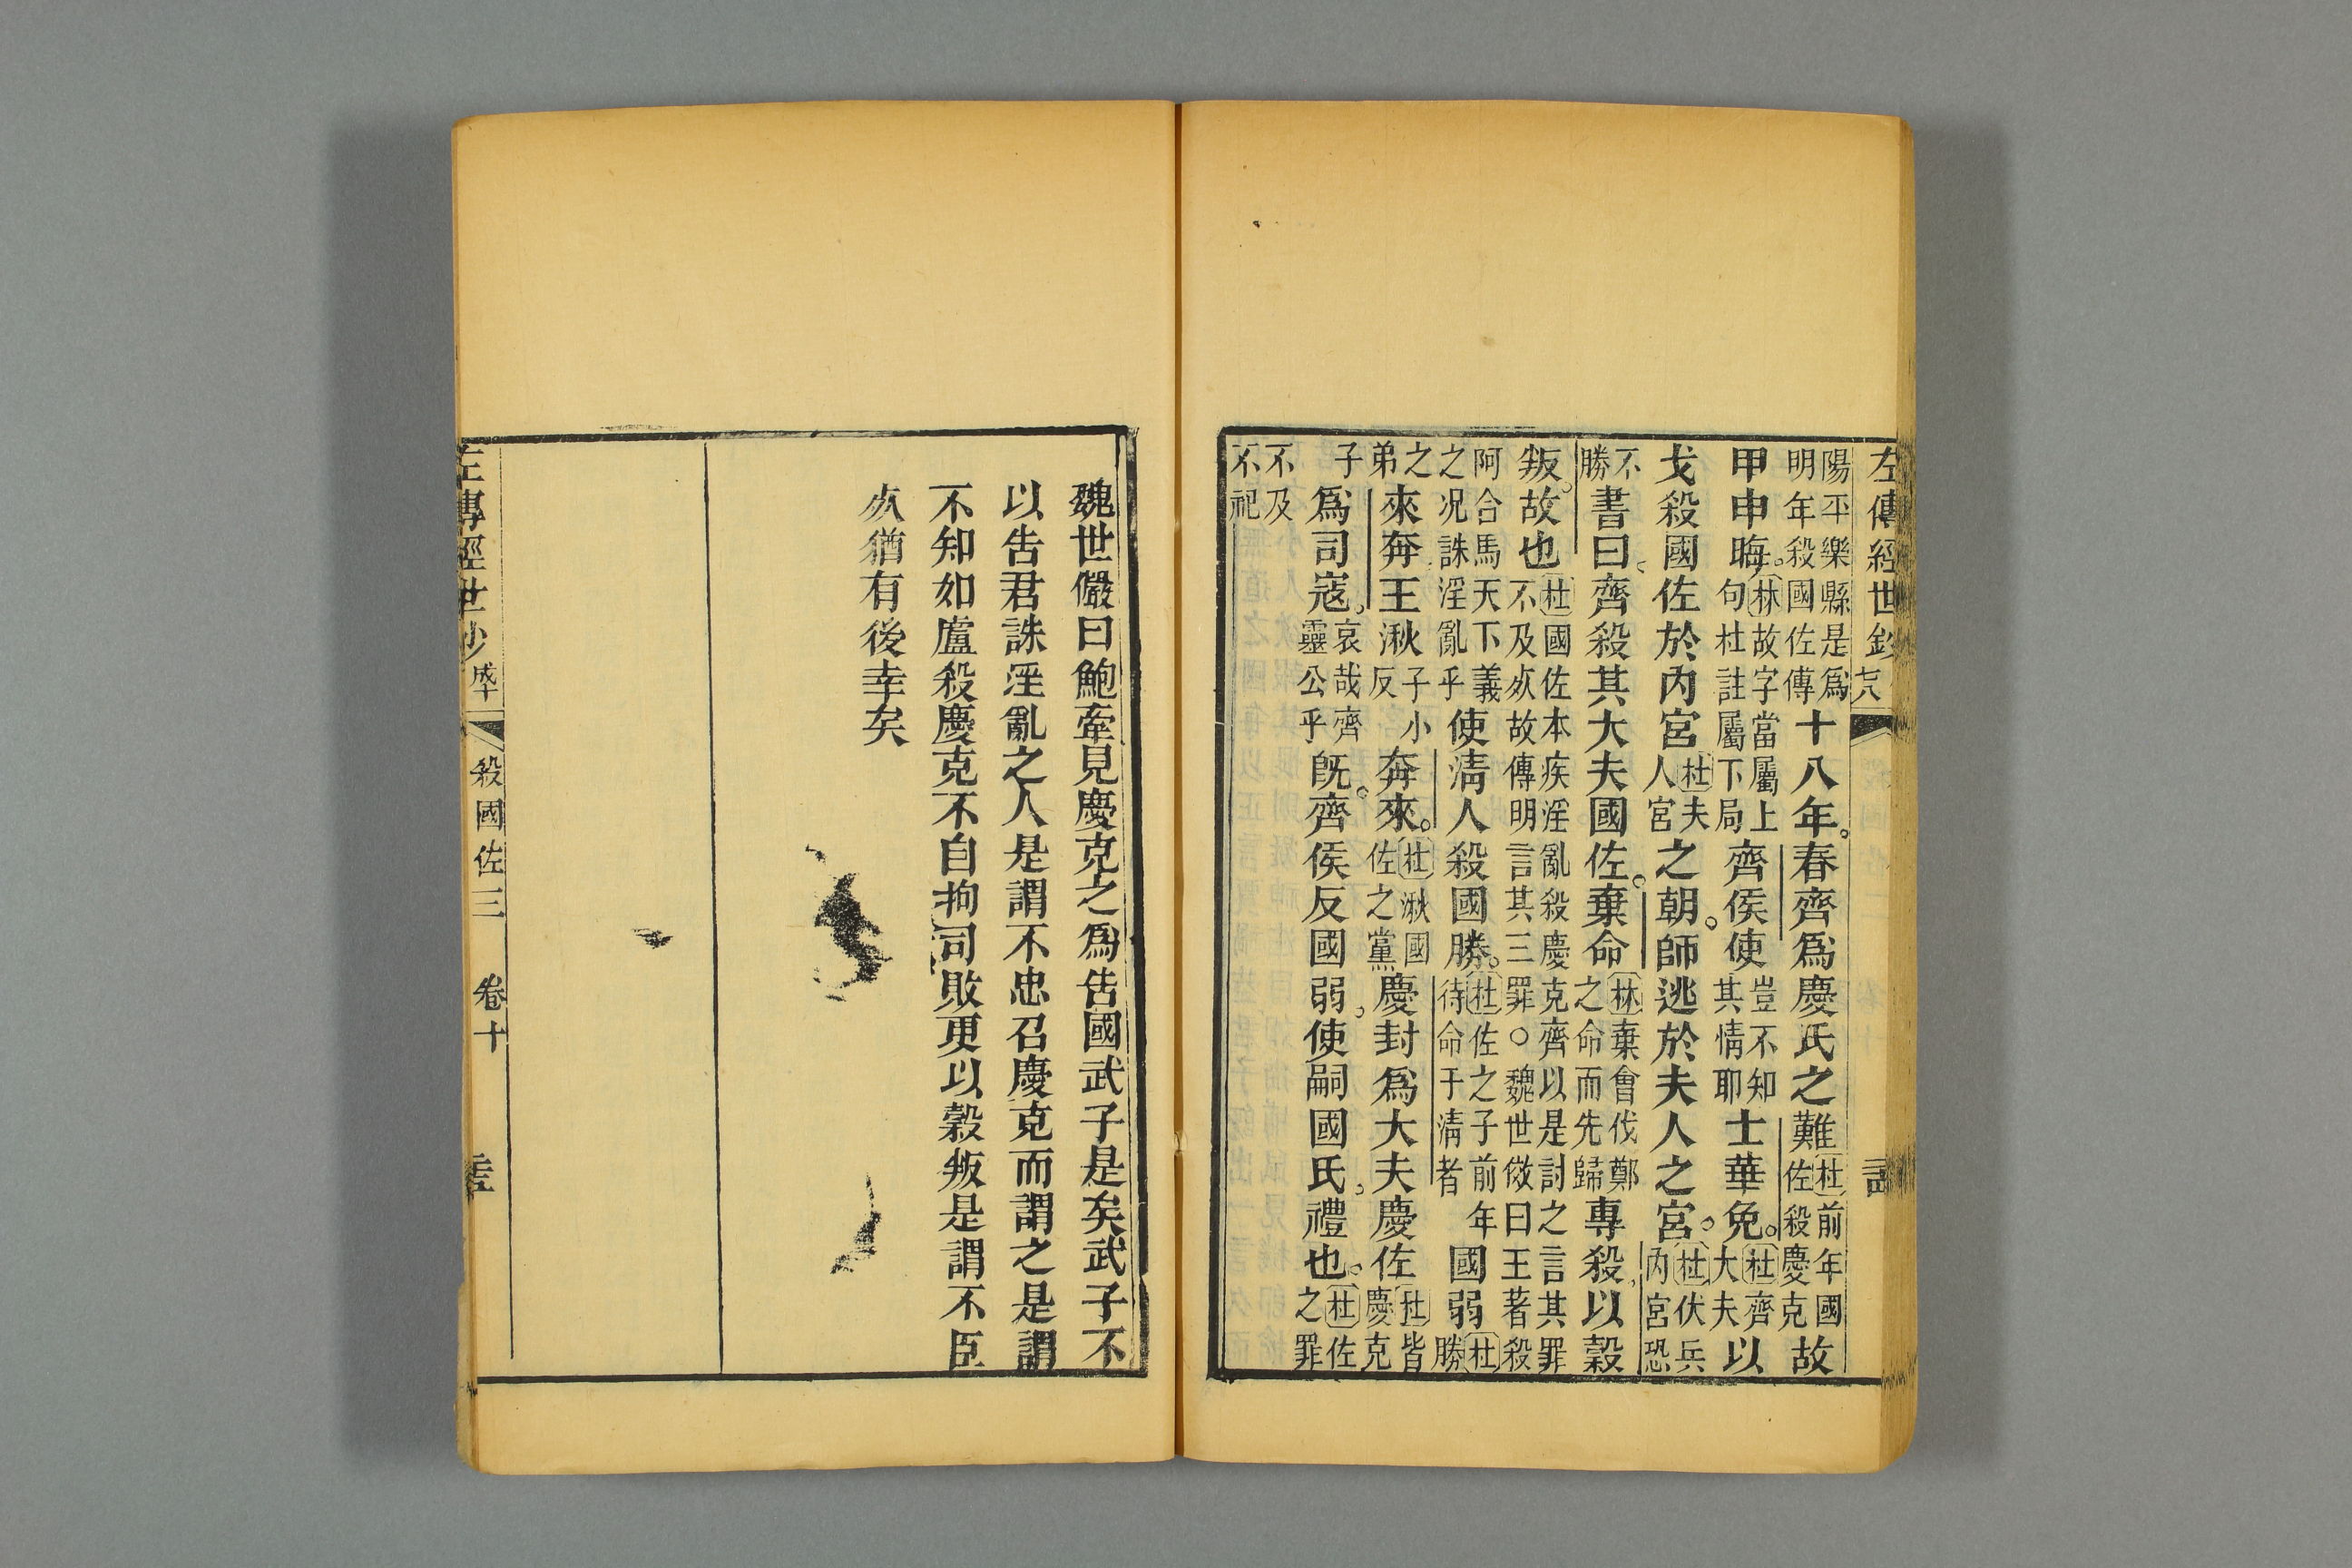 左傳經世鈔
陽平樂縣是爲明年殺國佐傳十八年。春齊爲慶氏之難杜前年國佐殺慶克故
甲申晦。林故字當屬上句杜註屬下局齊侯使豈不知其情耶士華免。杜齊大夫以
戈殺國佐於內宮杜夫人宮之朝。師逃於夫人之宮。杜伏兵內宮恐
不勝書曰。齊殺其大夫國佐。棄命林棄會伐鄭之命而先歸專殺。以穀
叛。故也杜國佐本疾淫亂殺慶克齊以是討之言其罪不及死故傳明言其三罪○魏世傚曰王者殺
阿合馬天下義之况誅淫亂乎使清人殺國勝。杜佐之子前年待命于清者國弱杜勝
之弟來奔王湫子小反奔來。杜湫國佐之黨慶封爲大夫慶佐杜皆慶克
子爲司寇。哀哉齊靈公乎旣。齊侯反國弱。使嗣國氏。禮也。杜佐之罪
不及不祀
魏世儼曰鮑牽見慶克之爲告國武子是矣武子不
以告君誅淫亂之人是謂不忠召慶克而謂之是謂
不知如盧殺慶克不自拘司敗更以穀叛是謂不臣
死猶有後幸矣
左傳經世鈔 殺國佐三 卷十